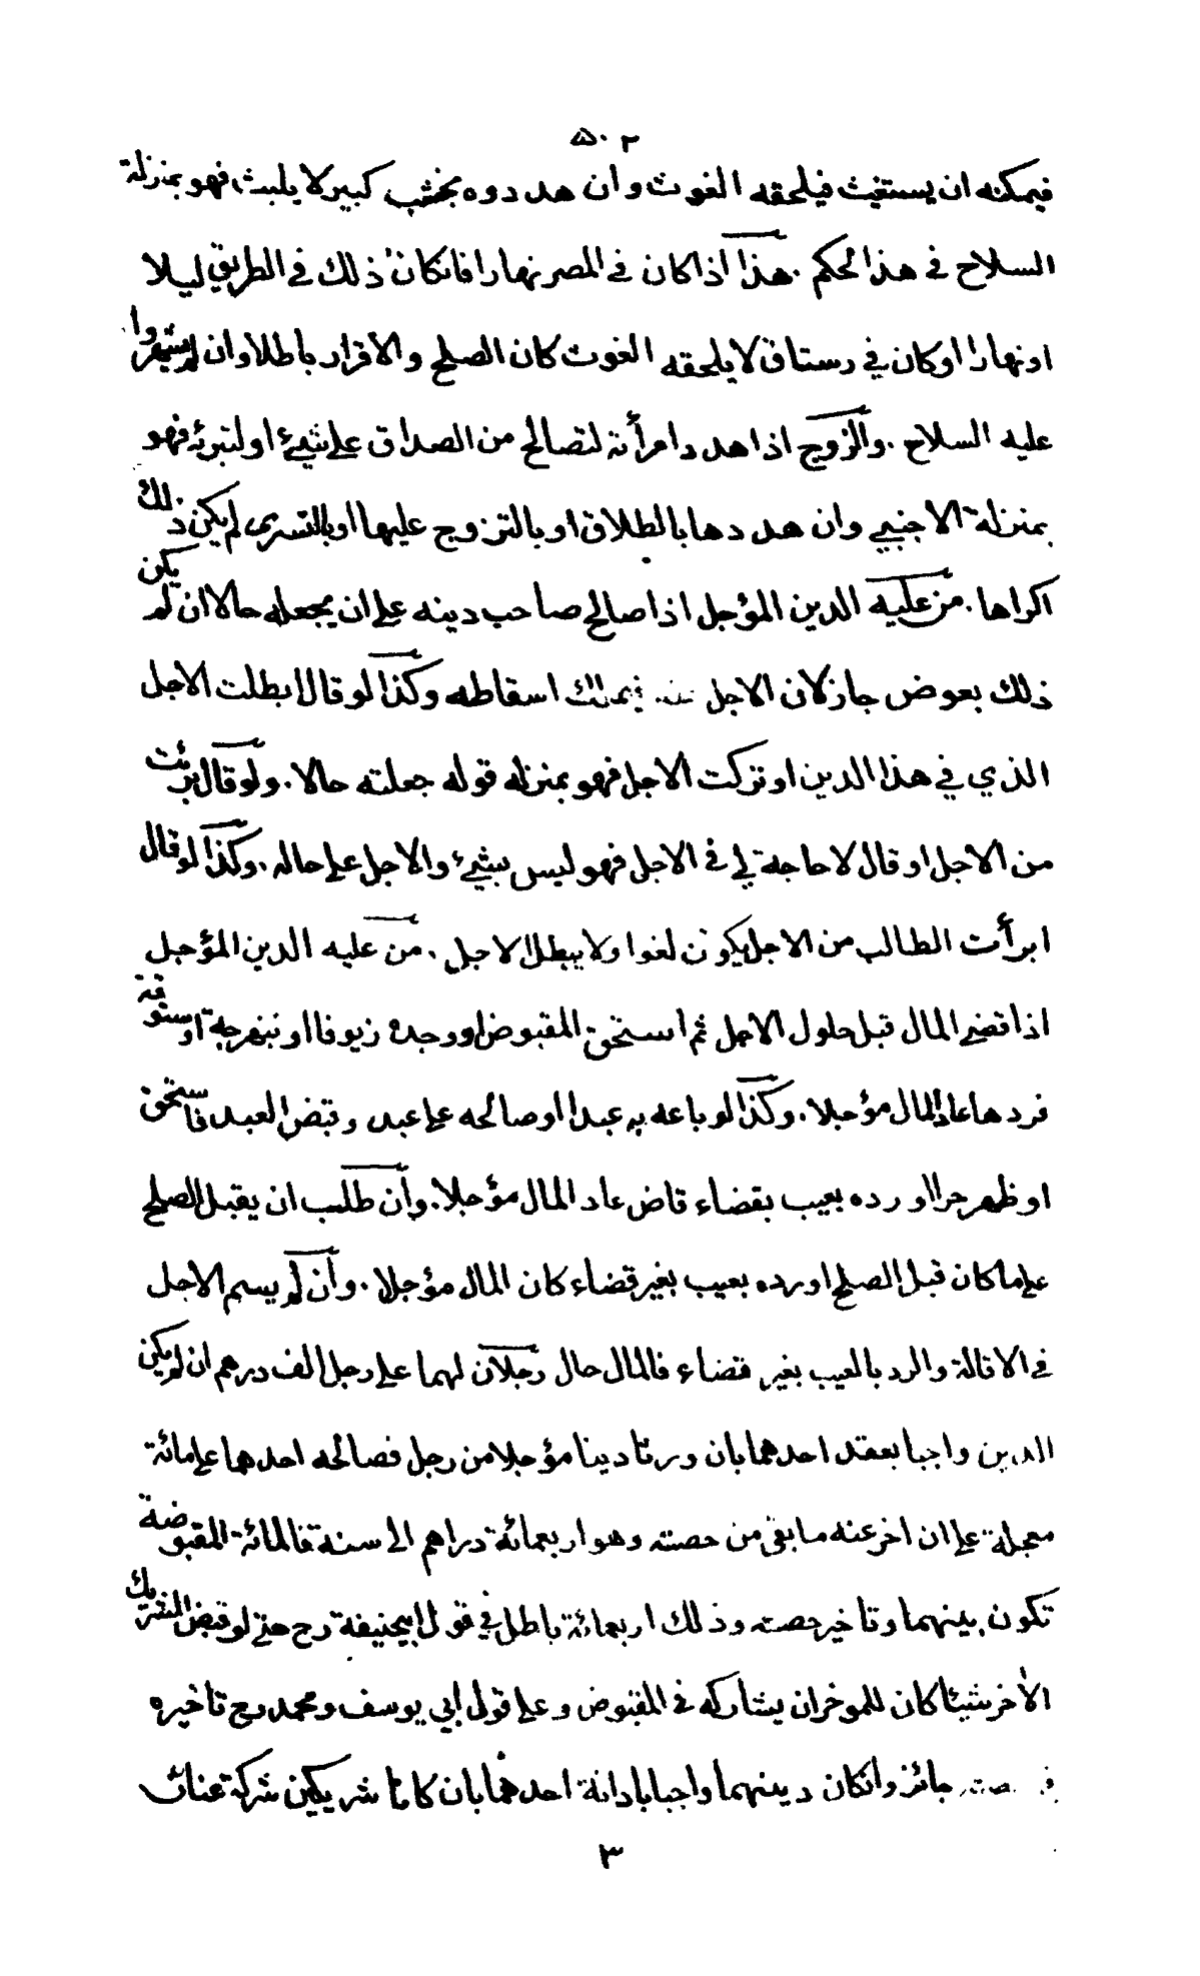 ۵۰۲
فيمكنه ان يستغيث فيلحقه الغوث وان هددوه بخشب كبير لا يلبث فهو بمنزلة
السلاح في هذا الحكم . هذا اذا كان في المصر نهارا فانكان ذلك في الطريق ليلا
او نهارا او كان في رستاق لا يلحقه الغوث كان الصلح والاقرار باطلا وان لم يشهروا
عليه السلاح . والزوج اذا هدد امرأته لتصالح من الصداق على شيئ او لتبرئه فهو
بمنزلة الاجنبي وان هددها بالطلاق او بالتزوج عليها او بالتسرى لم يكن ذلك
اكراها . من عليه الدين المؤجل اذا صالح صاحب دينه على ان يجعله حالا ان لم يكن
ذلك بعوض جاز لان الاجل فيملك اسقاطه وكذا لو قال ابطلت الاجل
الذي في هذا الدين او تركت الاجل فهو بمنزله قوله جعلته حالا . ولو قال برئت
من الاجل او قال لا حاجة لي في الاجل فهو ليس بشيئ والاجل على حاله . وكذا لو قال
ابرأت الطالب من الاجل يكون لغوا ولا يبطل الاجل . من عليه الدين المؤجل
اذا قضى المال قبل حلول الاجل ثم استحق المقبوض او وجده زيوفا او نبهرجة او ستوقة
فردها عاد المال مؤجلا . وكذا لو باعه به عبدا او صالحه على عبد وقبض العبد فاستحق
او ظهر حرا او رده بعيب بقضاء قاض عاد المال مؤجلا . وان طلب ان يقبل الصلح
على ما كان قبل الصلح او رده بعيب بغير قضاء كان المال مؤجلا . وان لم يسم الاجل
في الاقالة والرد بالعيب بغير قضاء فالمال حال رجلان لهما على رجل الف درهم ان لم يكن
الدين واجبا بعقد احدهما بان ورثا دينا مؤجلا من رجل فصالحه احدهما على مائة
معجلة على ان اخر عنه ما بقي من حصته وهو اربعمائة دراهم الى سنة فالمائة المقبوضة
تكون بينهما وتاخير حصته وذلك اربعمائة باطل في قول ابيحنيفة رح حتى لو قبض الشريك
الآخر شيئا كان للموخر ان يشاركه في المقبوض وعلى قول ابي يوسف ومحمد رح تاخيره
جائز وانكان دينهما واجبا بادانة احدهما بان كانا شريكين شركة عنان
۳